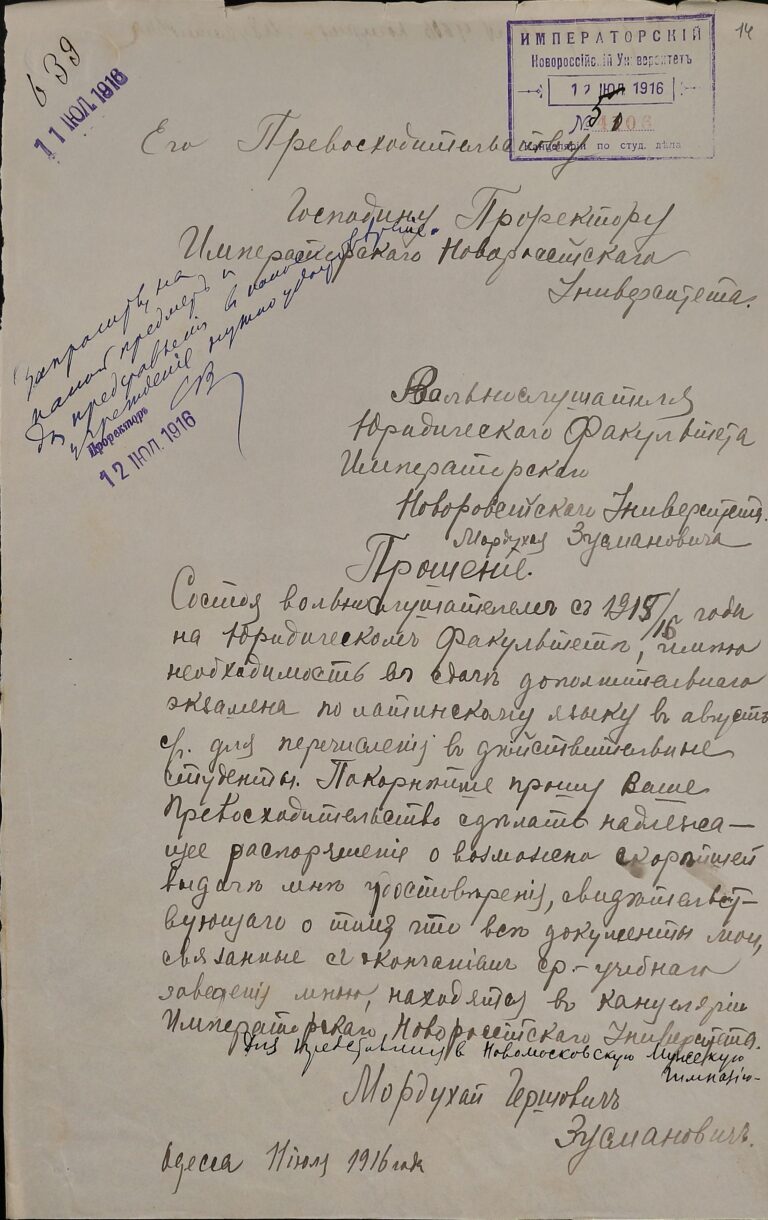 14
639
11 ІЮЛ. 1916
ИМПЕРАТОРСКІЙ
Новороссійскій Университетъ
12 ІЮЛ 1916
№
Канцелярія по студ. дѣла
Его Превосходительству
Господину Проректору
Императорскаго Новороссійскаго
Университета.
Запросить, на
какой предметъ и
для представленія въ какое
учрежденіе нужно удостовѣреніе.
Проректоръ
12 ІЮЛ. 1916
Вольнослушателя
Юридическаго Факультета
Императорскаго
Новороссійскаго Университета.
Мордухая Зусмановича
Прошеніе.
Состоя вольнослушателемъ съ 1915/16 года
на Юридическомъ Факультетѣ, имѣю
необходимость въ сдачѣ дополнительнаго
экзамена по латинскому языку въ августѣ
с/г. для перечисленія въ дѣйствительные
студенты. Покорнѣйше прошу Ваше
Превосходительство сдѣлать надлежа-
щее распоряженіе о возможно скорѣйшей
выдачѣ мнѣ удостовѣренія, свидѣтельст-
вующаго о томъ что всѣ документы мои,
связанные съ окончаніемъ ср.-учебнаго
заведенія мною, находятся въ канцеляріи
Императорскаго Новороссійскаго Университета.
для представленія въ Новомосковскую Мужскую
Гимназію-
Мордухай Гершовичъ
Зусмановичъ.
Одесса 11 іюля 1916 года